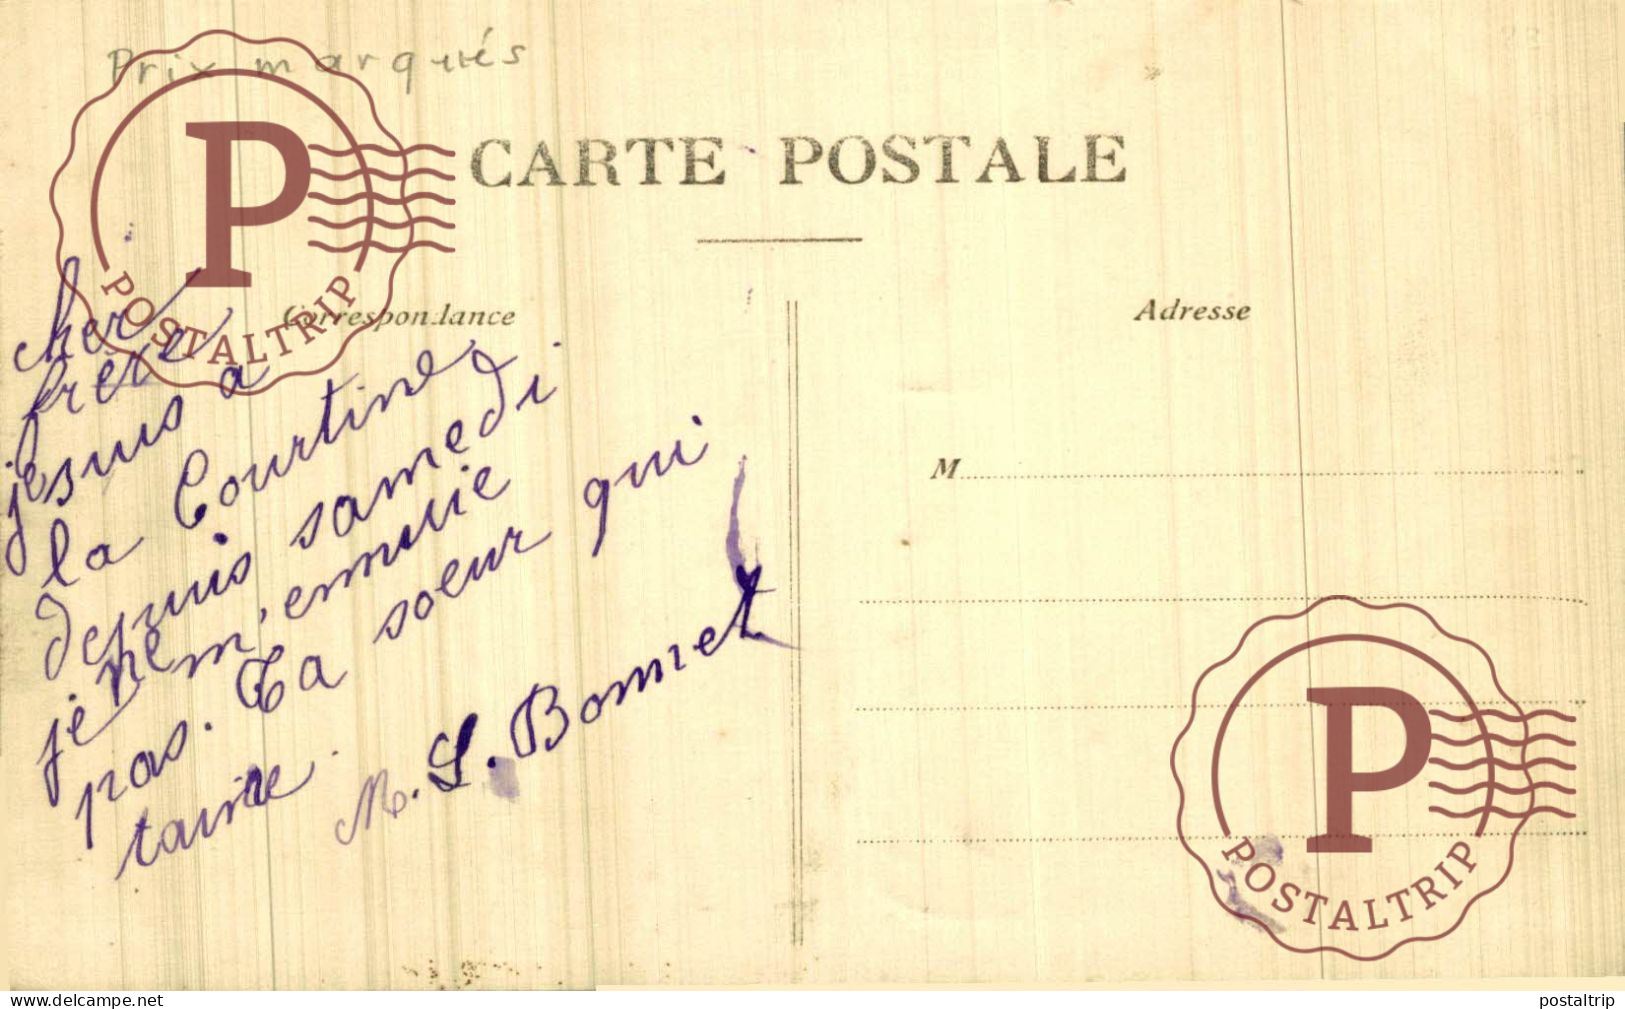 Prix marqués
CARTE POSTALE
Correspondance
Adresse
cher
frère
je suis a
la Courtine
depuis samedi.
je ne m'ennuie
pas. Ta soeur qui
t'aime.
M. L. Bonnet
M
P
POSTALTRIP
P
POSTALTRIP
www.delcampe.net
postaltrip